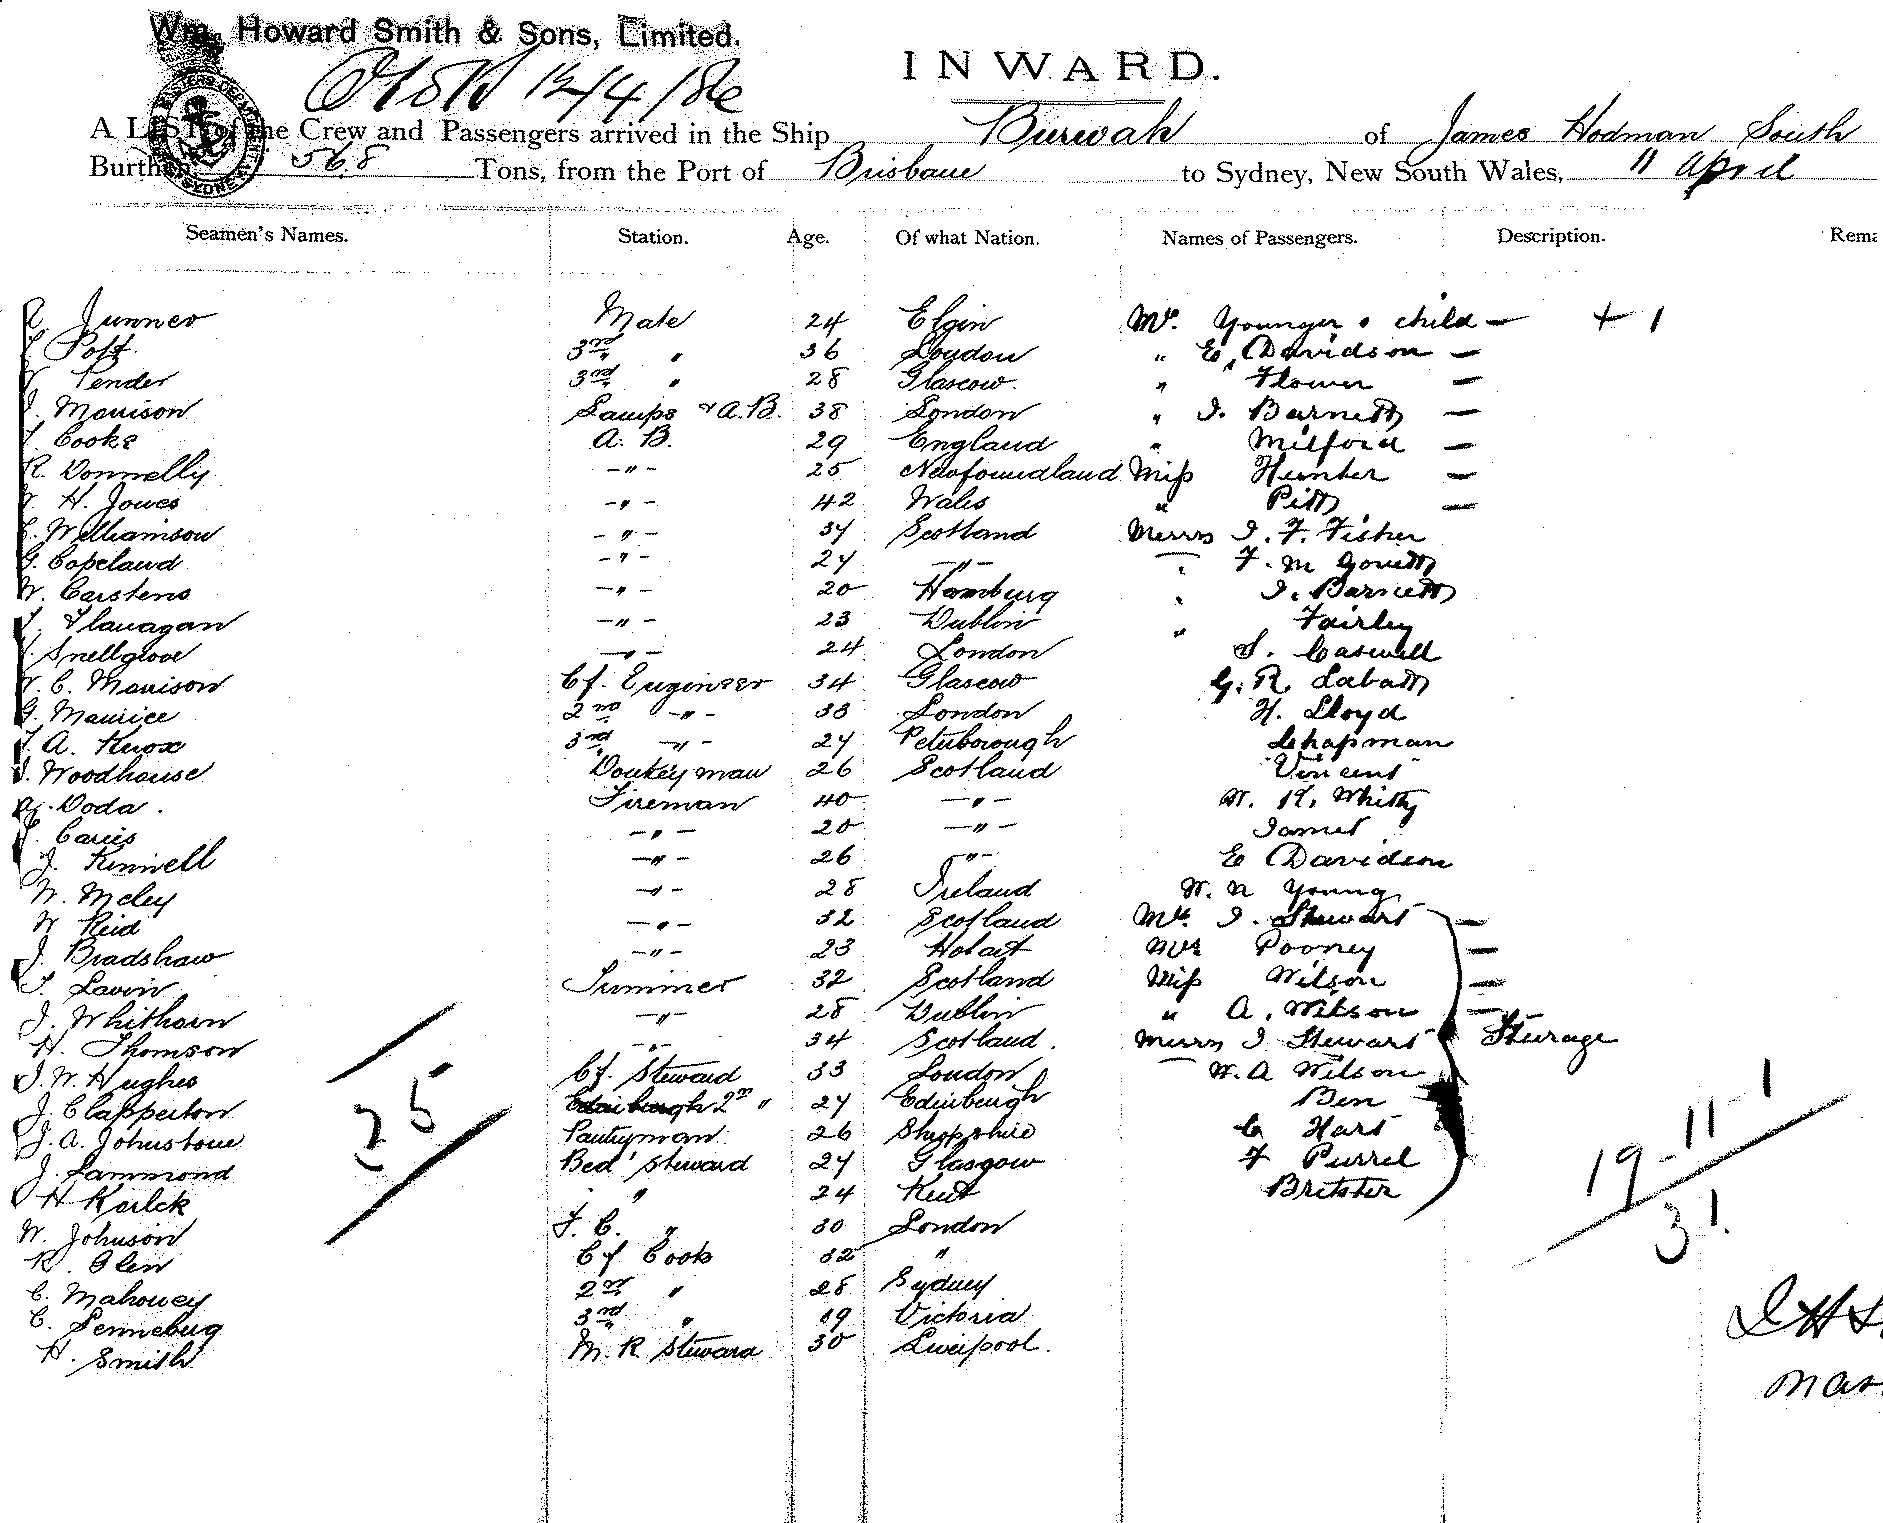 Wm. Howard Smith & Sons, Limited.
12/4/86
INWARD.
A LIST of the Crew and Passengers arrived in the Ship Burwah of James Hodman South
Burthen 568 Tons, from the Port of Brisbane to Sydney, New South Wales, 11 April
Seamen's Names. Station. Age. Of what Nation. Names of Passengers. Description. Rema
R Junner Mate 24 Elgin Mrs. Younger & child — + 1
Pott 3rd " 36 London " E. Davidson —
Pender 3rd " 28 Glascow. " Flower —
J. Morrison Lamps & A.B. 38 London " I. Barnett —
Cooke A. B. 29 England " Milford —
R. Donnelly - " - 25 Newfoundland Miss Hunter —
H. Jowes - " - 42 Wales " Pitt —
Williamson - " - 37 Scotland Messrs I. F. Fisher
G. Copeland - " - 27 - " - " F. M Gouett
W. Carstens - " - 20 Hamburg " I. Barnett
Flanagan - " - 23 Dublin " Fairley
Snellgrove - " - 24 London S. Caswell
W. C. Morrison Cf. Engineer 34 Glascow G. R. Labatt
G. Maurice 2nd - " - 33 London H. Lloyd
A. Knox 3rd - " - 27 Peterborough Chapman
J. Woodhouse Donkeyman 26 Scotland Vincent
Doda. Fireman 40 - " - W. H. Whitty
Caries - " - 20 - " - James
J. Kinnell - " - 26 - " - E Davidson
W. McLey - " - 28 Ireland W. N Young
W Reid - " - 32 Scotland Mrs. I. Stewart —
J. Bradshaw - " - 23 Hobart Mrs Pooney —
T. Lavin Trimmer 32 Scotland Miss Wilson —
J. Whithorn - " - 28 Dublin " A. Wilson —
H. Thomson - " - 34 Scotland. Messrs I Stewart Steerage
J. W. Hughes Cf. Steward 33 London W. A Wilson
J. Clapperton Edinburgh 2nd " 27 Edinburgh Ben
J. A. Johnstone Pantryman 26 Shropshire C Hart
J. Lammond Bed Steward 27 Glasgow F Purrel
H Karlek " 24 Kent Britster
W. Johnson F. C. " 30 London
R. Glen Cf Cook 32 "
C. Mahoney 2nd " 28 Sydney
C. Penneburg 3rd " 19 Victoria
H. Smith M. R. Steward 30 Liverpool.
25
19 - 11 - 1
31.